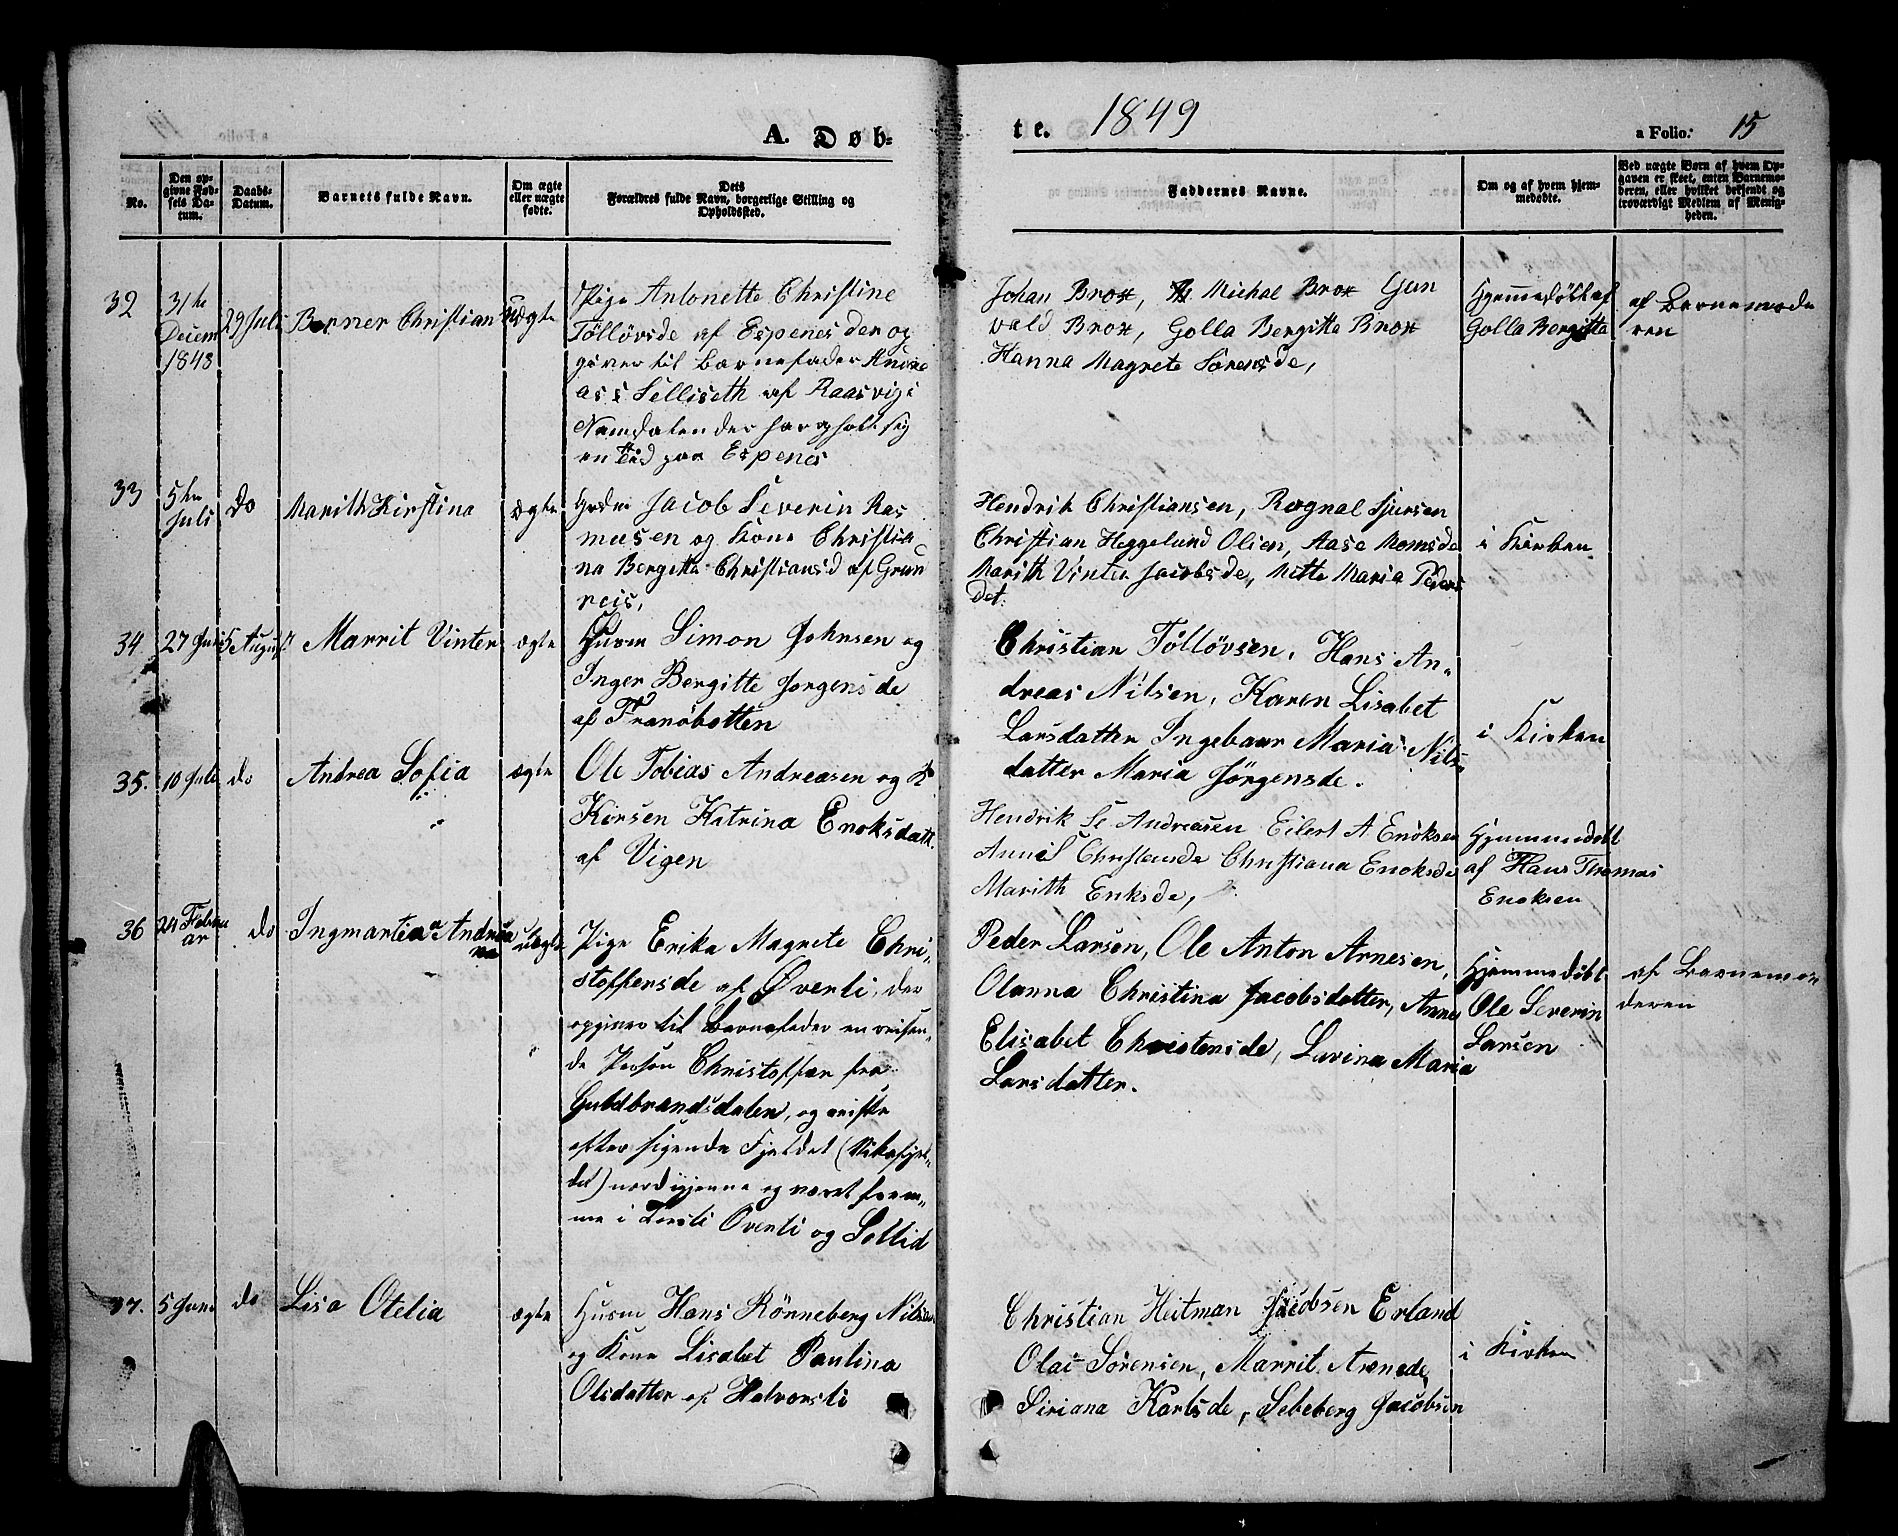 A. Døb-
te. 1849
a Folio: 15
No.
Den op-
givne Fød-
sels Da-
tum.
Daabs-
Datum.
Barnets fulde Navn.
Om ægte
eller uægte
fødte.
Dets
Forældres fulde Navn, borgerlige Stilling og
Opholdssted.
Faddernes Navne.
Om og af hvem hjem-
medøbte.
Ved uægte Børn af hvem Op-
gaven er skeet, enten Barnemo-
deren, eller hvilket bekjendt og
troværdigt Medlem af Menig-
heden.
32
31te
Decem
1848
29 Juli
Berner Christian
Uægte
Pige Antonette Christine
Tølløvsde af Espenes der op
giver til Barnefader Andre
as Sellisæth af Raasvig i
Namdalen der har opholt sig
en Tid paa Espenes
Johan Brox, Michal Brox Gun
vald Brox, Golla Bergitte Brox
Hanna Magrete Sørensde,
Hjemmedøbt af
Golla Bergitta
af Barnemode
ren
33
5te
Juli
do
Marith Kirstina
ægte
Jacob Severin Ras
musen og Kone Christia
na Bergitte Christiansd af Grun
reis,
Hendrik Christiansen, Ragnal Sjursen
Christian Heggelund Olsen, Aase Momsde
Marith Vinter Jacobsde, Mette Maria Peders
det.
i Kirken
34
27 Juli
5 August
Marrit Vinter
ægte
Husm Simon Johnsen og
Inger Bergitte Jørgensde
af Tranøbotten
Christian Tølløvsen, Hans An-
dreas Nilsen, Karen Lisabet
Larsdatter Ingebaar Maria Nils-
datter Maria Jørgensde.
i Kirken
35.
10 Juli
do
Andrea Sofia
ægte
Ole Tobias Andreasen og K
Kirsen Katrina Enoksdatt.
af Vigen
Hendrik Andreasen Eilert A Enoksen
Christiana Enoksde
Marith Enksde,
Hjemmedøbt
af Hans Thomas
Enoksen
36
24 Febru
ar
do
Ingmartea Andrea
na
uægte
Pige Erika Magrete Chri-
stoffersde af Øverli, der
opgiver til Barnefader en reisen-
de Person Christoffer fra
Guldbrandsdalen, og reiste
efter sigende Fjeldet
det) nordigjenne og været frem-
me i Øverli og Sollid
Peder Larsen, Ole Anton Arnesen,
Olanna Christina Jacobsdatter, Anne
Elisabet Christensde, Lavina Maria
Larsdatter.
Hjemmedøbt
Ole Severin
Larsen
af Barnemo
deren
37.
5 Juni
do
Lisa Otelia
ægte
Husm Hans Rønneberg Nilsen
og Kone Lisabet Paulina
Olsdatter af Halvorsli
Christian Heitman Jacobsen Erland
Olai Sørensen, Marrit Arnede,
Siriana Karlsde, Seleberg Jacobsen
i Kirken